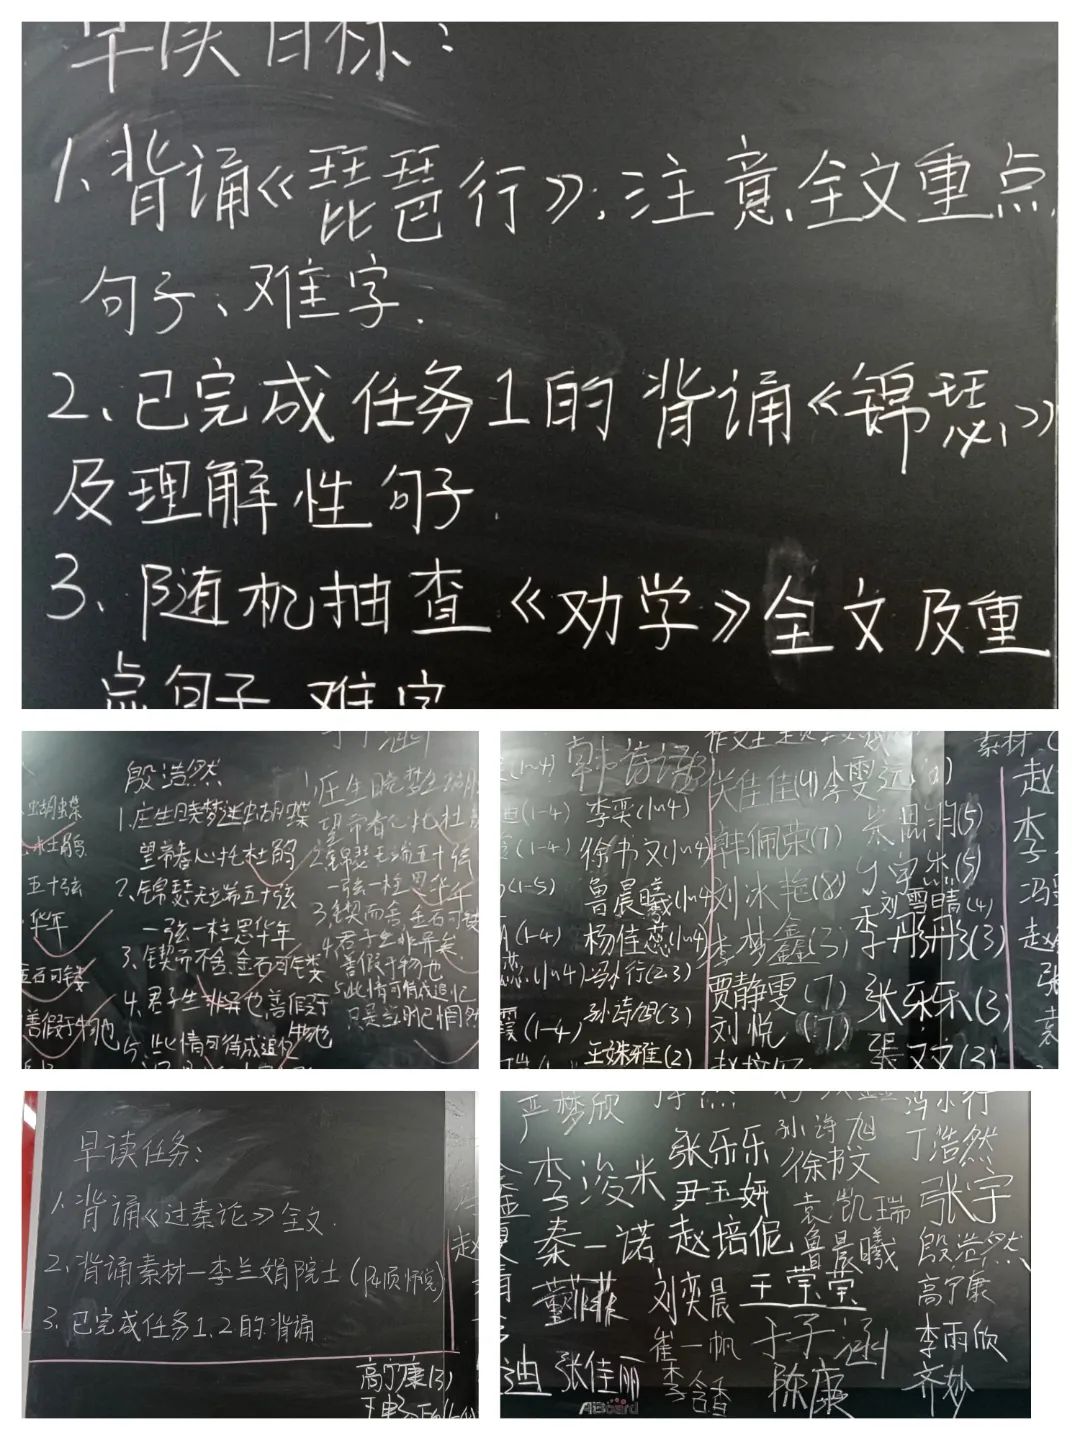 早读目标:
1、背诵《琵琶行》,注意全文重点
句子、难字.
2、已完成任务1的背诵《锦瑟》
及理解性句子.
3、随机抽查《劝学》全文及重
点句子 难字
殷浩然
1.庄生晓梦迷蝴蝶
望帝春心托杜鹃
2、锦瑟无端五十弦
一弦一柱思华年
3、锲而不舍,金石可镂
4、君子生非异也善假于
物也
5、此情可待成追忆
蝴蝶
五十弦
华年
金石可镂
善假于物也
于子涵
1.庄生晓梦迷蝴
望帝春心托杜
2.锦瑟无端五十弦
一弦一柱思华年
3、锲而舍,金石可镂
4.君子生非异矣
善假于物也
5.此情可待成追忆
只是当时已惘然
李奕(1~4)
徐书文(1~4)
鲁晨曦(1~4)
杨佳蕊(1~4)
冯小行(2.3)
孙诗旭(3)
王姝雅(2)
关佳佳(4)
韩佩荣(7)
刘冰艳(8)
李梦鑫(3)
贾静雯(7)
刘悦(7)
刘雪晴(4)
李丹丹(3)
张乐乐(3)
张文文(3)
素材
早读任务:
1.背诵《过秦论》全文.
2、背诵素材—李兰娟院士
3、已完成任务1.2的背诵
高宁康(3)
严梦欣
李浚米
秦一诺
董菲菲
张佳丽
张乐乐
尹玉妍
赵培伲
刘奕晨
崔一帆
李含香
孙诗旭
徐书文
袁凯瑞
鲁晨曦
王莹莹
于子涵
陈康
冯小行
丁浩然
张宇
殷浩然
高宁康
李雨欣
齐妙
ABoard